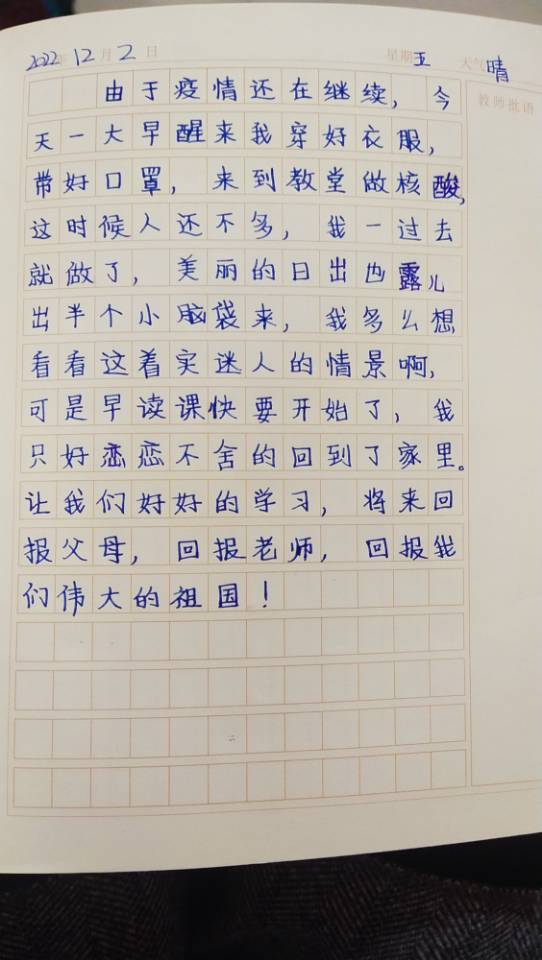 2022年12月2日 星期五 天气晴
教师批语
由于疫情还在继续，今
天一大早醒来我穿好衣服，
带好口罩，来到教堂做核酸，
这时候人还不多，我一过去
就做了，美丽的日出也露儿
出半个小脑袋来，我多么想
看看这着实迷人的情景啊，
可是早读课快要开始了，我
只好恋恋不舍的回到了家里。
让我们好好的学习，将来回
报父母，回报老师，回报我
们伟大的祖国！